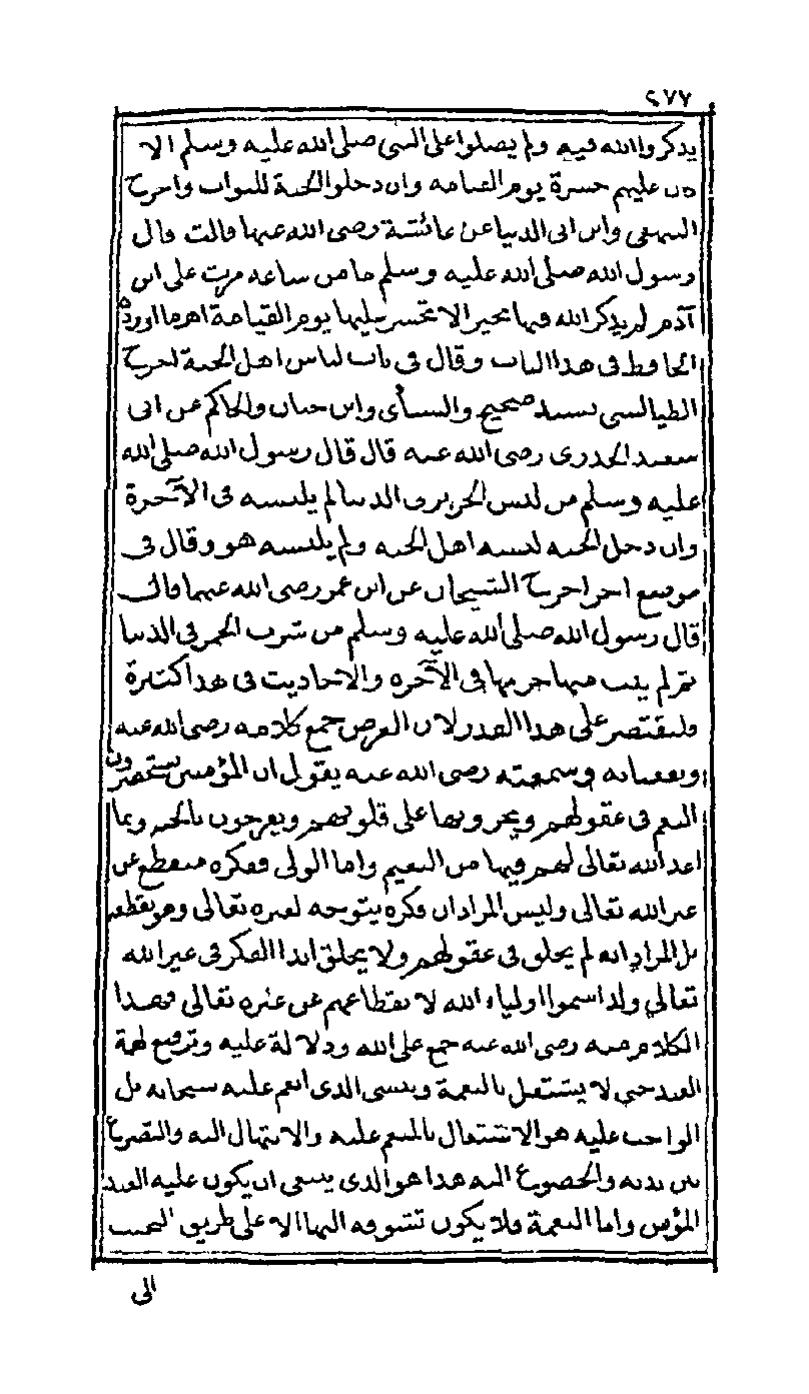 ٢٧٧
يذكروا الله فيه ولم يصلوا على النبي صلى الله عليه وسلم الا
كان عليهم حسرة يوم القيامه وان دخلوا الجنة للثواب واخرج
البيهقي وابن ابي الدنيا عن عائشة رضى الله عنها قالت قال
رسول الله صلى الله عليه وسلم ما من ساعه مرت على ابن
آدم لم يذكر الله فيها بخير الا تحسر عليها يوم القيامة اهـ ما اورده
الحافظ في هذا الباب وقال في باب لباس اهل الجنة اخرج
الطيالسي بسند صحيح والنسأى وابن حبان والحاكم عن ابى
سعيد الخدرى رضى الله عنه قال قال رسول الله صلى الله
عليه وسلم من لبس الحرير في الدنيا لم يلبسه في الآخرة
وان دخل الجنه لبسه اهل الجنه ولم يلبسه هو وقال في
موضع اخر اخرج الشيخان عن ابن عمر رضى الله عنهما قال
قال رسول الله صلى الله عليه وسلم من شرب الخمر في الدنيا
ثم لم يتب منها حرمها في الآخره والاحاديث في هذا كثيرة
ولنقتصر على هذا القدر لان الغرض جمع كلامه رضى الله عنه
ونفعنا به وسمعته رضى الله عنه يقول ان المؤمنين يستحضرون
النعم في عقولهم ويجرونها على قلوبهم ويفرحون بالجنه وبما
اعد الله تعالى لهم فيها من النعيم واما الولى ففكره منقطع عن
غير الله تعالى وليس المراد ان فكره يتوجه لغيره تعالى وهو يقطعه
بل المراد انه لم يخلق في عقولهم ولا يخلق ابدا الفكر في غير الله
تعالى ولذا سموا اولياء الله لانقطاعهم عن غيره تعالى فهذا
الكلام منه رضى الله عنه جمع على الله ودلالة عليه وترفيع لهمة
العبد حتى لا يشتغل بالنعمة وينسى الذى انعم عليه سبحانه بل
الواجب عليه هو الاشتغال بالمنعم عليه والابتهال اليه والتضرع
بين يديه والخضوع اليه هذا هو الذى ينبغي ان يكون عليه العبد
المؤمن واما النعمة فلا يكون تشوفه اليها الا على طريق التحبب
الى